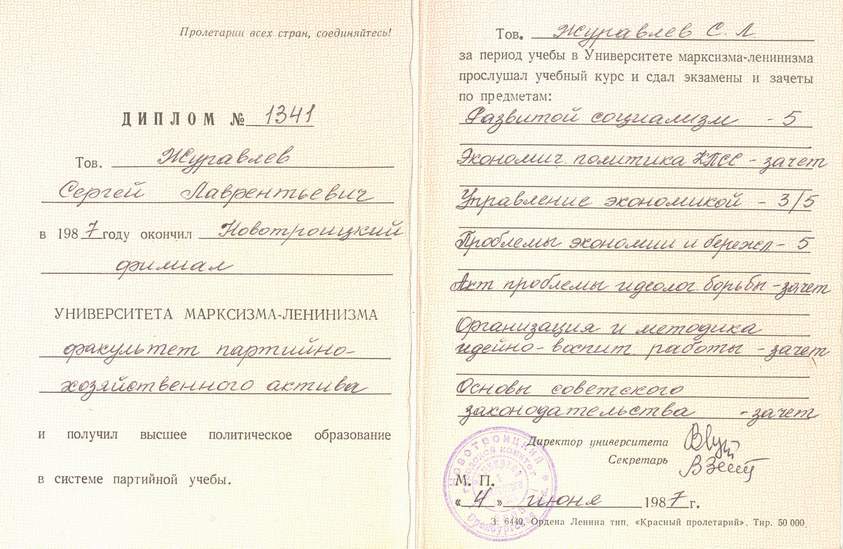 Пролетарии всех стран, соединяйтесь!
ДИПЛОМ № 1341
Тов. Журавлев
Сергей Лаврентьевич
в 1987 году окончил Новотроицкий
филиал
УНИВЕРСИТЕТА МАРКСИЗМА-ЛЕНИНИЗМА
факультет партийно-
хозяйственного актива
и получил высшее политическое образование
в системе партийной учебы.
Тов. Журавлев С. Л
за период учебы в Университете марксизма-ленинизма
прослушал учебный курс и сдал экзамены и зачеты
по предметам:
Развитой социализм - 5
Экономич. политика КПСС - зачет
Управление экономикой - 3/5
Проблемы экономии и бережл - 5
Акт проблемы идеолог борьбы - зачет
Организация и методика
идейно-воспит. работы - зачет
Основы советского
законодательства - зачет
Директор университета
Секретарь
М. П.
«4» июня 1987 г.
З. 6449. Ордена Ленина тип. «Красный пролетарий». Тир. 50 000.